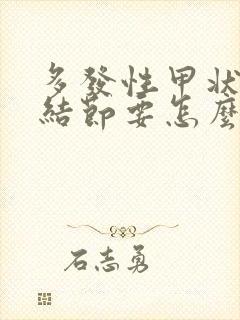 多發性甲狀
結節要怎麼
石志勇